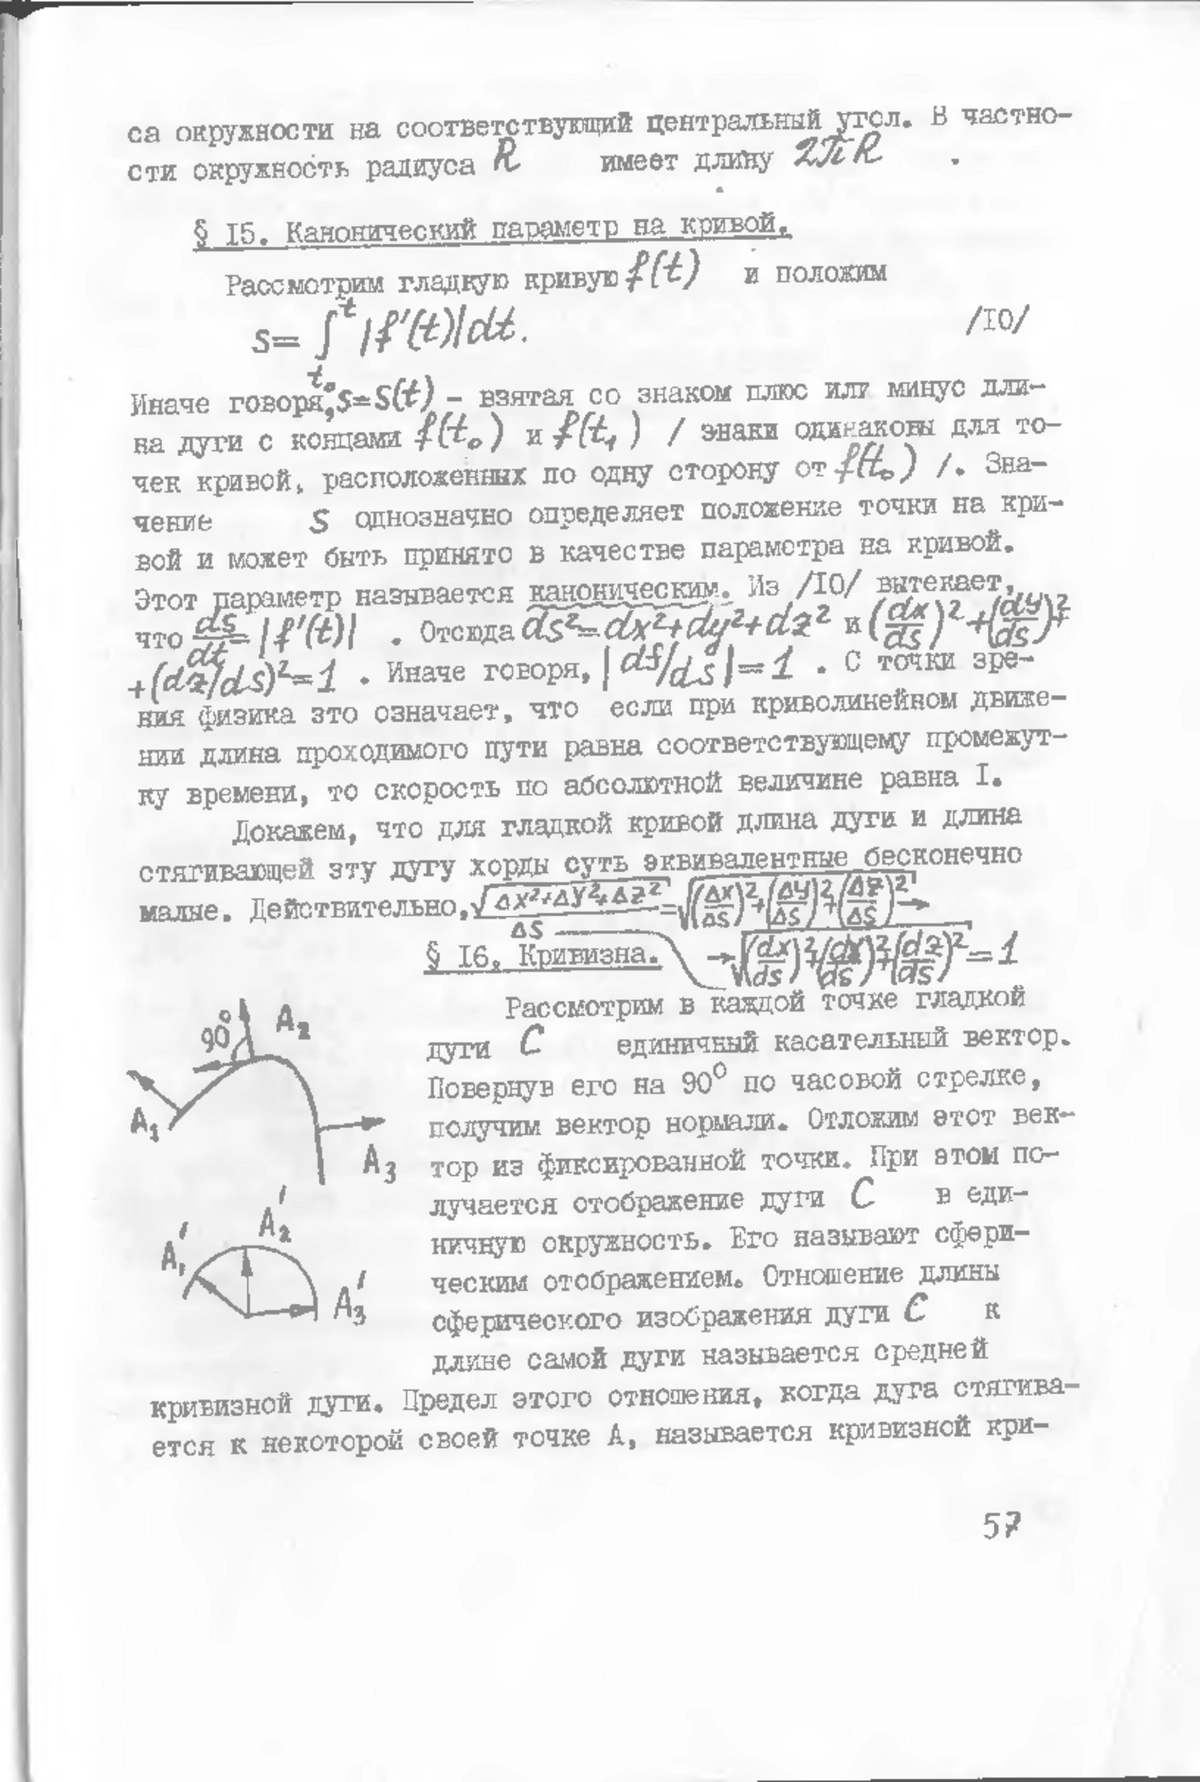 са окружности на соответствующий центральный угол. В частно-
сти окружность радиуса R имеет длину 2πR .
§ I5. Канонический параметр на кривой.
Рассмотрим гладкую кривую f(t) и положим
s= ∫ₜ₀ᵗ |f'(t)|dt. /I0/
Иначе говоря, s=s(t) - взятая со знаком плюс или минус дли-
на дуги с концами f(t₀) и f(t₁) / знаки одинаковы для то-
чек кривой, расположенных по одну сторону от f(t₀) /. Зна-
чение S однозначно определяет положение точки на кри-
вой и может быть принято в качестве параметра на кривой.
Этот параметр называется каноническим. Из /I0/ вытекает,
что ds/dt = |f'(t)| . Отсюда ds²=dx²+dy²+dz² и (dx/ds)²+(dy/ds)²+
+(dz/ds)²=1 . Иначе говоря, |df/ds|=1 . С точки зре-
ния физика это означает, что если при криволинейном движе-
нии длина проходимого пути равна соответствующему промежут-
ку времени, то скорость по абсолютной величине равна I.
Докажем, что для гладкой кривой длина дуги и длина
стягивающей эту дугу хорды суть эквивалентные бесконечно
малые. Действительно, √(Δx²+Δy²+Δz²)/Δs = √((Δx/Δs)²+(Δy/Δs)²+(Δz/Δs)²) →
→ √((dx/ds)²+(dy/ds)²+(dz/ds)²) = 1
§ I6. Кривизна.
Рассмотрим в каждой точке гладкой
дуги C единичный касательный вектор.
Повернув его на 90° по часовой стрелке,
получим вектор нормали. Отложим этот век-
тор из фиксированной точки. При этом по-
лучается отображение дуги C в еди-
ничную окружность. Его называют сфери-
ческим отображением. Отношение длины
сферического изображения дуги C к
длине самой дуги называется средней
кривизной дуги. Предел этого отношения, когда дуга стягива-
ется к некоторой своей точке А, называется кривизной кри-
90°
A₂
A₁
A₃
A₂'
A₁'
A₃'
57